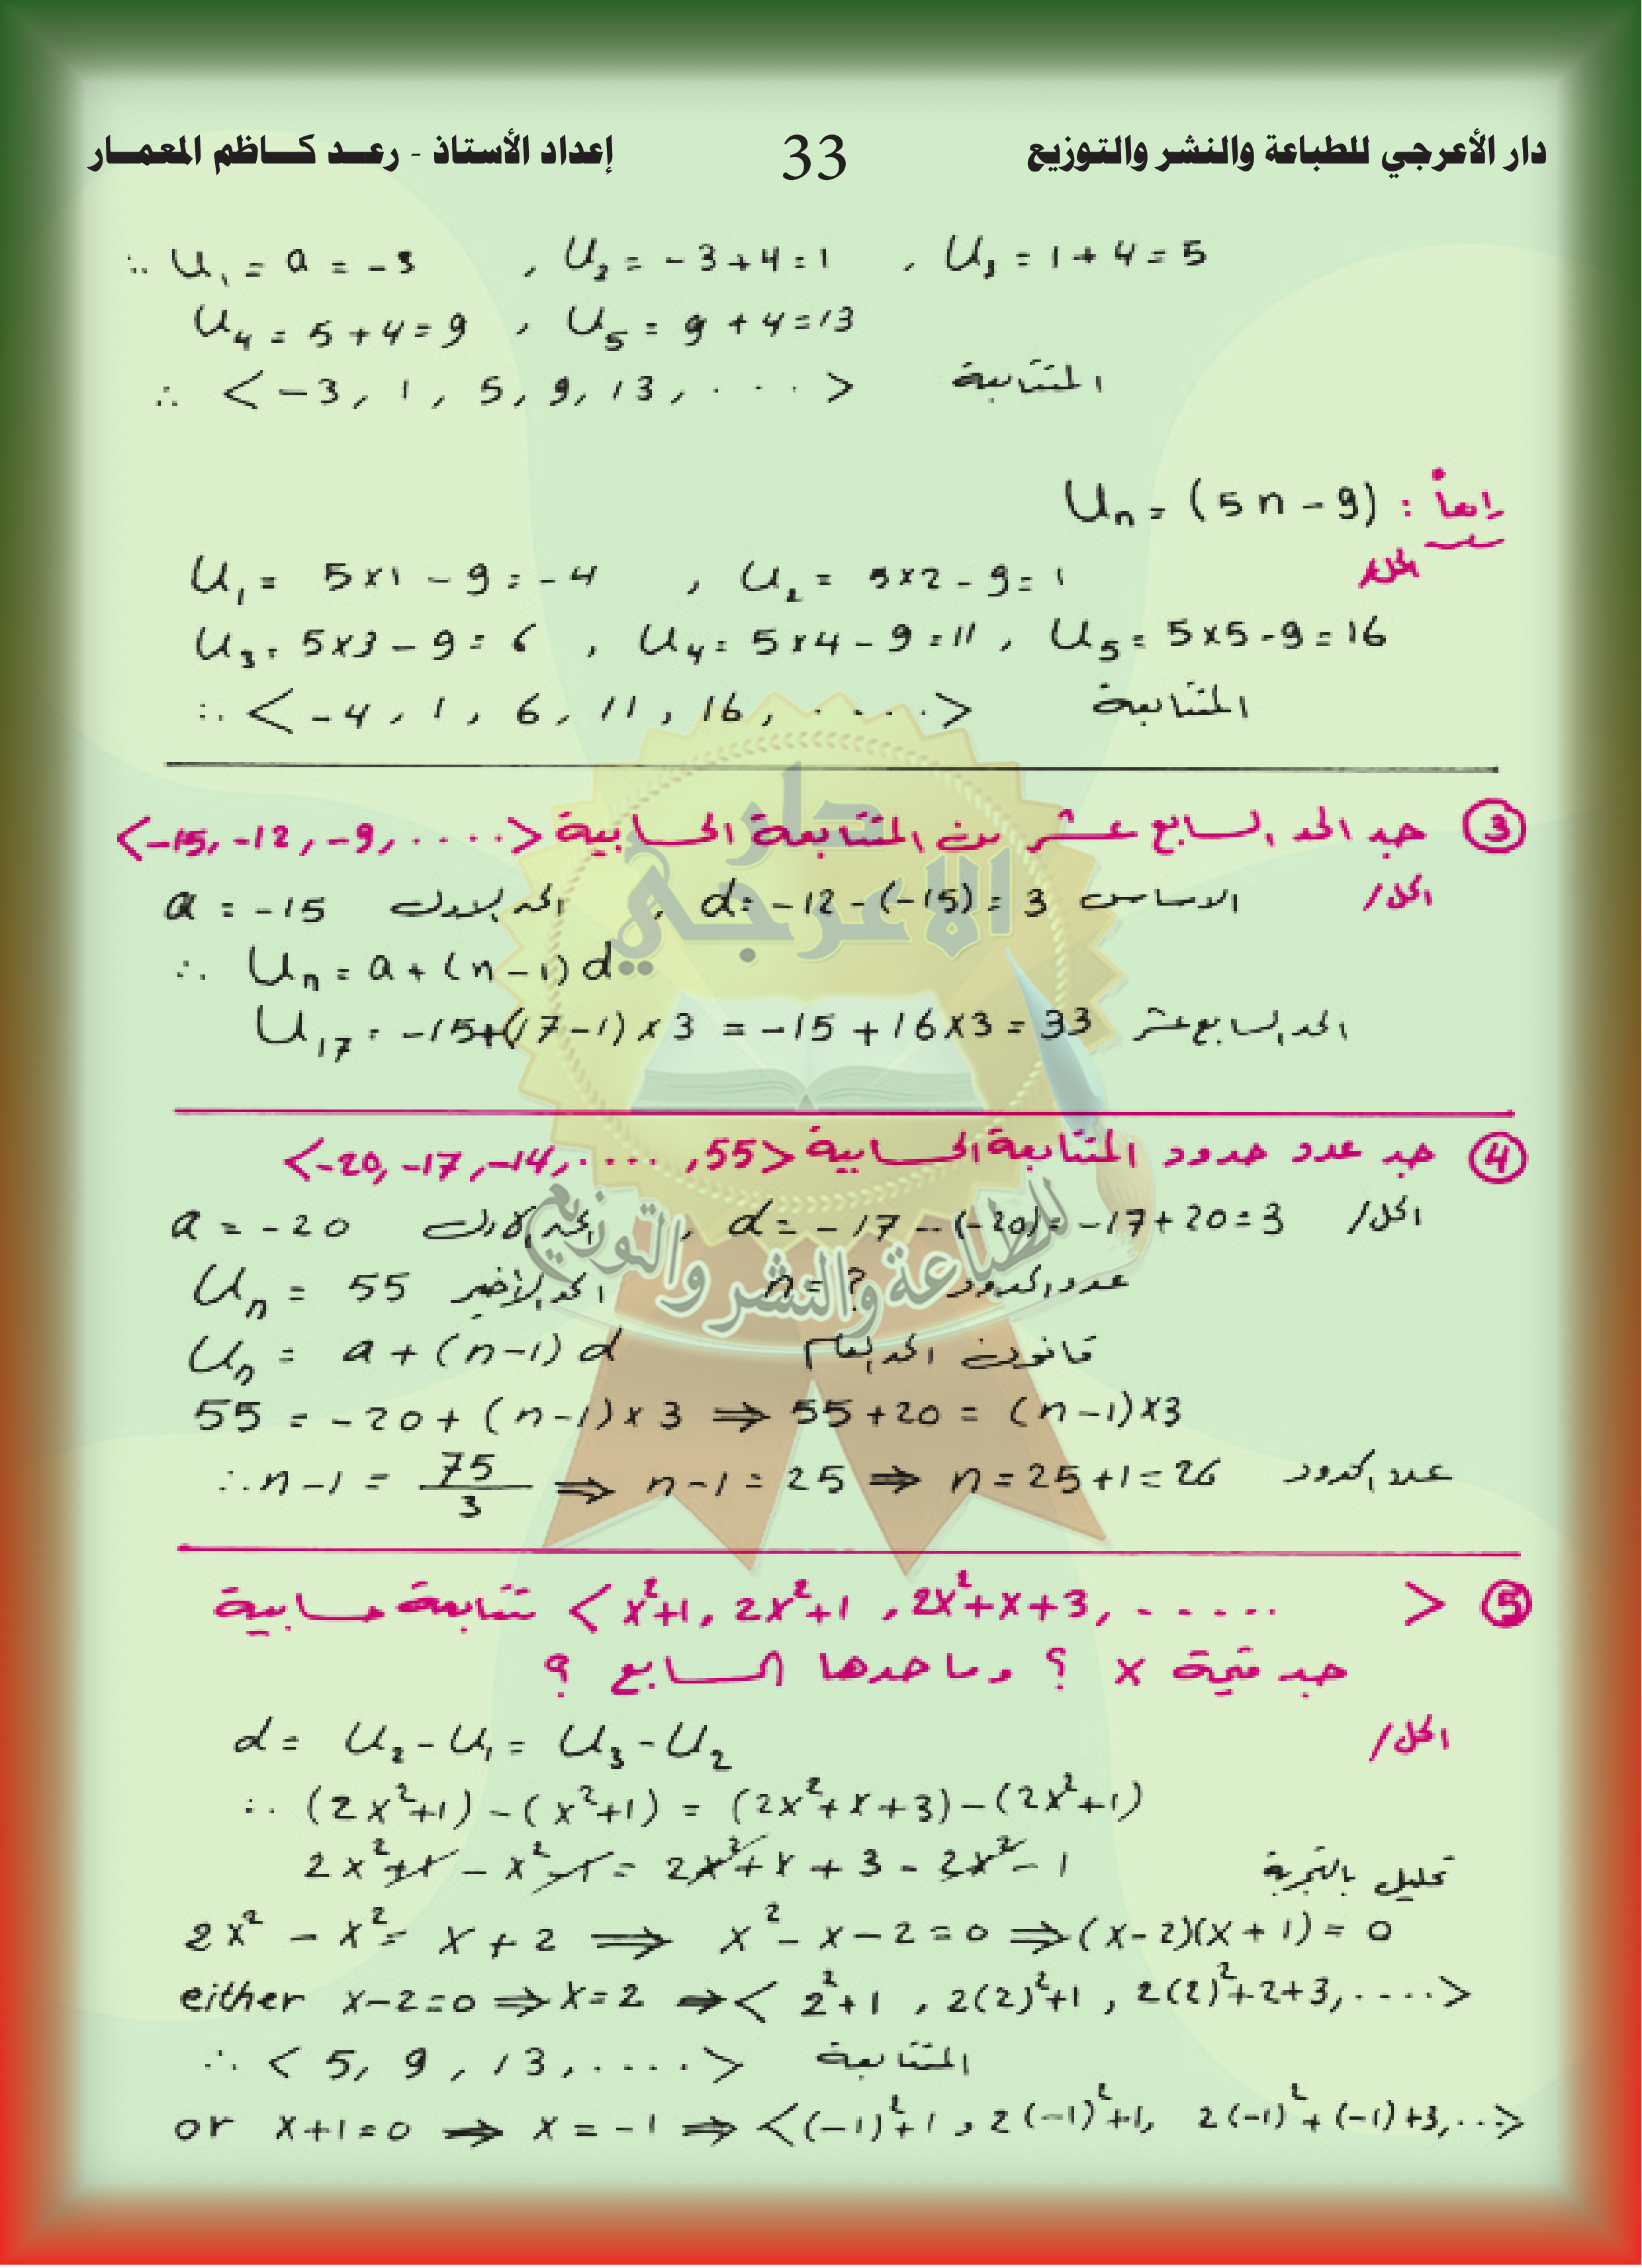 دار الأعرجي للطباعة والنشر والتوزيع 33 إعداد الأستاذ - رعد كاظم المعمار
∴ U₁ = a = -3 , U₂ = -3+4=1 , U₃ = 1+4=5
U₄ = 5+4=9 , U₅ = 9+4=13
∴ <-3, 1, 5, 9, 13, ....> المتتابعة
رابعاً : Uₙ = (5n-9)
الحل/
U₁ = 5×1-9=-4 , U₂ = 5×2-9=1
U₃ = 5×3-9=6 , U₄ = 5×4-9=11 , U₅ = 5×5-9=16
∴ <-4, 1, 6, 11, 16, .....> المتتابعة
③ جد الحد السابع عشر من المتتابعة الحسابية <-15, -12, -9, .....>
الحل/ a = -15 الحد الاول , d = -12-(-15) = 3 الاساس
∴ Uₙ = a+(n-1)d
U₁₇ = -15+(17-1)×3 = -15+16×3 = 33 الحد السابع عشر
④ جد عدد حدود المتتابعة الحسابية <-20, -17, -14, ....., 55>
الحل/ a = -20 الحد الاول , d = -17-(-20) = -17+20=3
Uₙ = 55 الحد الأخير n = ? عدد الحدود
Uₙ = a+(n-1)d قانون الحد العام
55 = -20+(n-1)×3 ⇒ 55+20 = (n-1)×3
∴ n-1 = 75/3 ⇒ n-1=25 ⇒ n=25+1=26 عدد الحدود
⑤ <x²+1, 2x²+1, 2x²+x+3, ......> متتابعة حسابية
جد قيمة x ؟ وما حدها السابع ؟
الحل/ d = U₂-U₁ = U₃-U₂
∴ (2x²+1)-(x²+1) = (2x²+x+3)-(2x²+1)
2x²+1-x²-1 = 2x²+x+3-2x²-1 تحليل بالتجربة
2x²-x² = x+2 ⇒ x²-x-2=0 ⇒ (x-2)(x+1)=0
either x-2=0 ⇒ x=2 ⇒ <2²+1, 2(2)²+1, 2(2)²+2+3, ....>
∴ <5, 9, 13, .....> المتتابعة
or x+1=0 ⇒ x=-1 ⇒ <(-1)²+1, 2(-1)²+1, 2(-1)²+(-1)+3, ...>
دار
الاعرجي
للطباعة والنشر والتوزيع